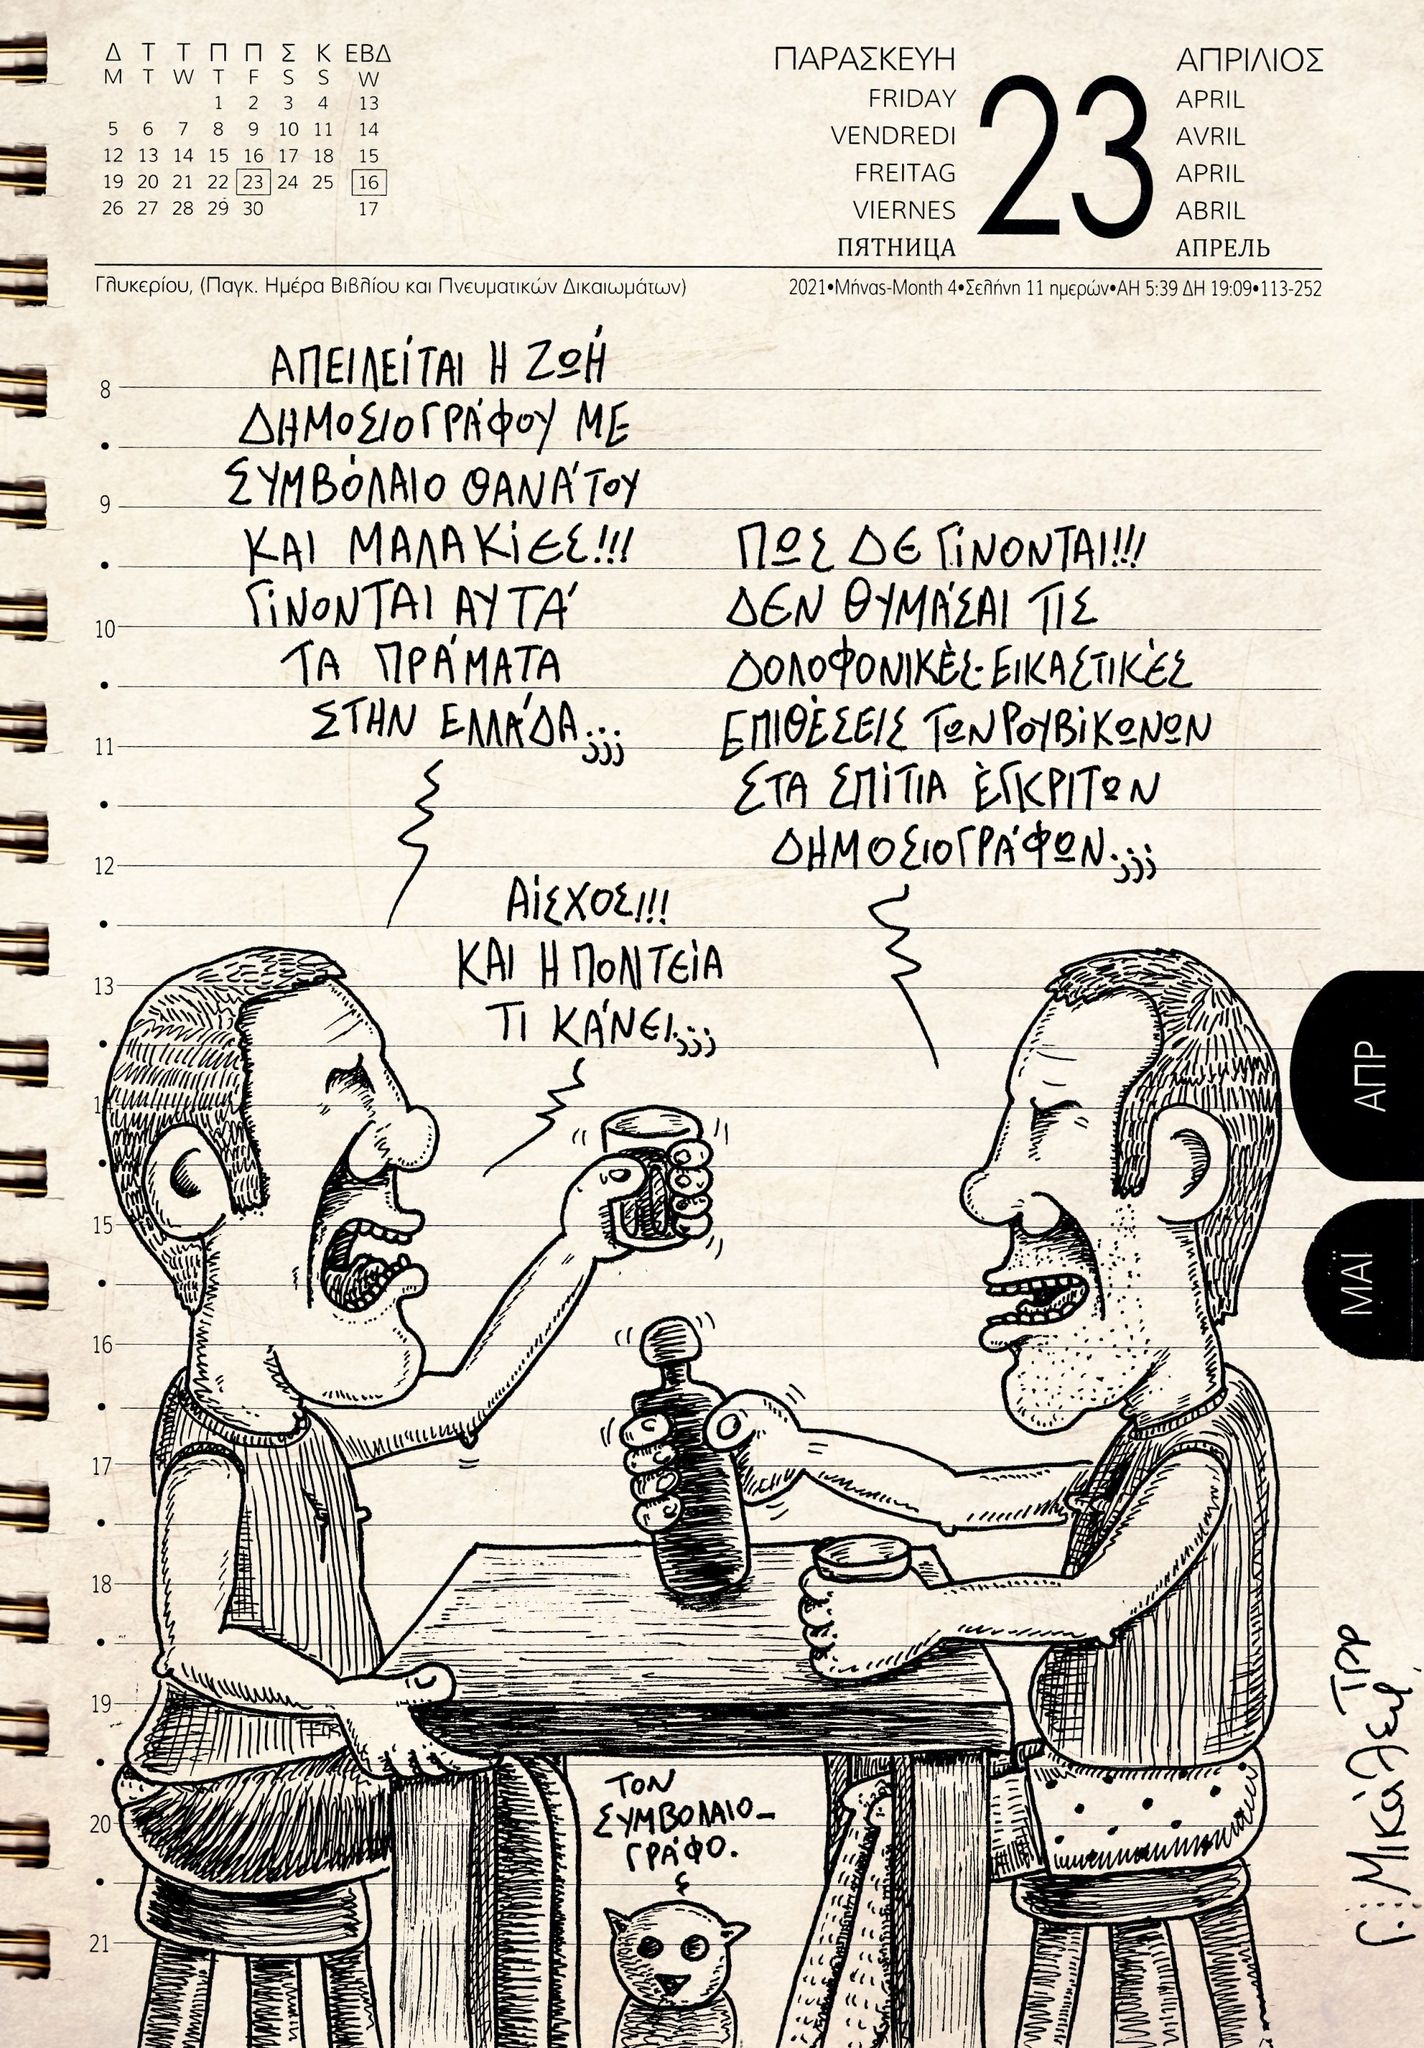 Δ Τ Τ Π Π Σ Κ ΕΒΔ
M T W T F S S W
1 2 3 4 13
5 6 7 8 9 10 11 14
12 13 14 15 16 17 18 15
19 20 21 22 23 24 25 16
26 27 28 29 30 17
ΠΑΡΑΣΚΕΥΗ
FRIDAY
VENDREDI
FREITAG
VIERNES
ПЯТНИЦА
23
ΑΠΡΙΛΙΟΣ
APRIL
AVRIL
APRIL
ABRIL
АПРЕЛЬ
Γλυκερίου, (Παγκ. Ημέρα Βιβλίου και Πνευματικών Δικαιωμάτων)
2021•Μήνας-Month 4•Σελήνη 11 ημερών•ΑΗ 5:39 ΔΗ 19:09•113-252
ΑΠΕΙΛΕίΤΑΙ Η ΖΩΉ
ΔΗΜΟΣΙΟΓΡΆΦΟΥ ΜΕ
ΣΥΜΒΌΛΑΙΟ ΘΑΝΆΤΟΥ
ΚΑΙ ΜΑΛΑΚίΕΣ!!!
ΓίΝΟΝΤΑΙ ΑΥΤΆ
ΤΑ ΠΡΆΜΑΤΑ
ΣΤΗΝ ΕΛΛΆΔΑ;;;
ΠΩΣ ΔΕ ΓίΝΟΝΤΑΙ!!!
ΔΕΝ ΘΥΜΆΣΑΙ ΤΙΣ
ΔΟΛΟΦΟΝΙΚΈΣ-ΕΙΚΑΣΤΙΚΈΣ
ΕΠΙΘΈΣΕΙΣ ΤΩΝ ΡΟΥΒίΚΩΝΩΝ
ΣΤΑ ΣΠίΤΙΑ ΈΓΚΡΙΤΩΝ
ΔΗΜΟΣΙΟΓΡΆΦΩΝ;;;
ΑίΣΧΟΣ!!!
ΚΑΙ Η ΠΟΛΙΤΕίΑ
ΤΙ ΚΆΝΕΙ;;;
ΤΟΝ
ΣΥΜΒΟΛΑΙΟ-
ΓΡΆΦΟ.
8
9
10
11
12
13
14
15
16
17
18
19
20
21
ΑΠΡ
ΜΑΪ